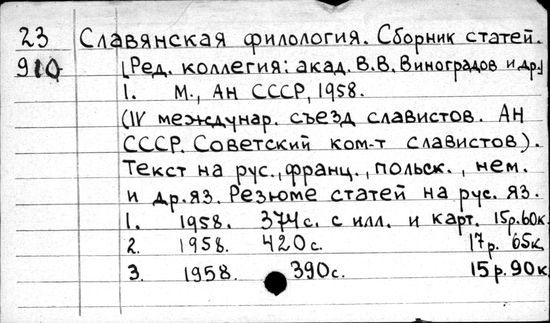 23 Славянская филология. Сборник статей.
910 [Ред. коллегия: акад. В.В. Виноградов и др.]
1. М., Ан СССР, 1958.
(IV междунар. съезд славистов. Ан
СССР. Советский ком-т славистов).
Текст на рус., франц., польск., нем.
и др. яз. Резюме статей на рус. яз.
1. 1958. 374с. с илл. и карт. 15р.60к.
2. 1958. 420с. 17р. 65к.
3. 1958. 390с. 15р.90к